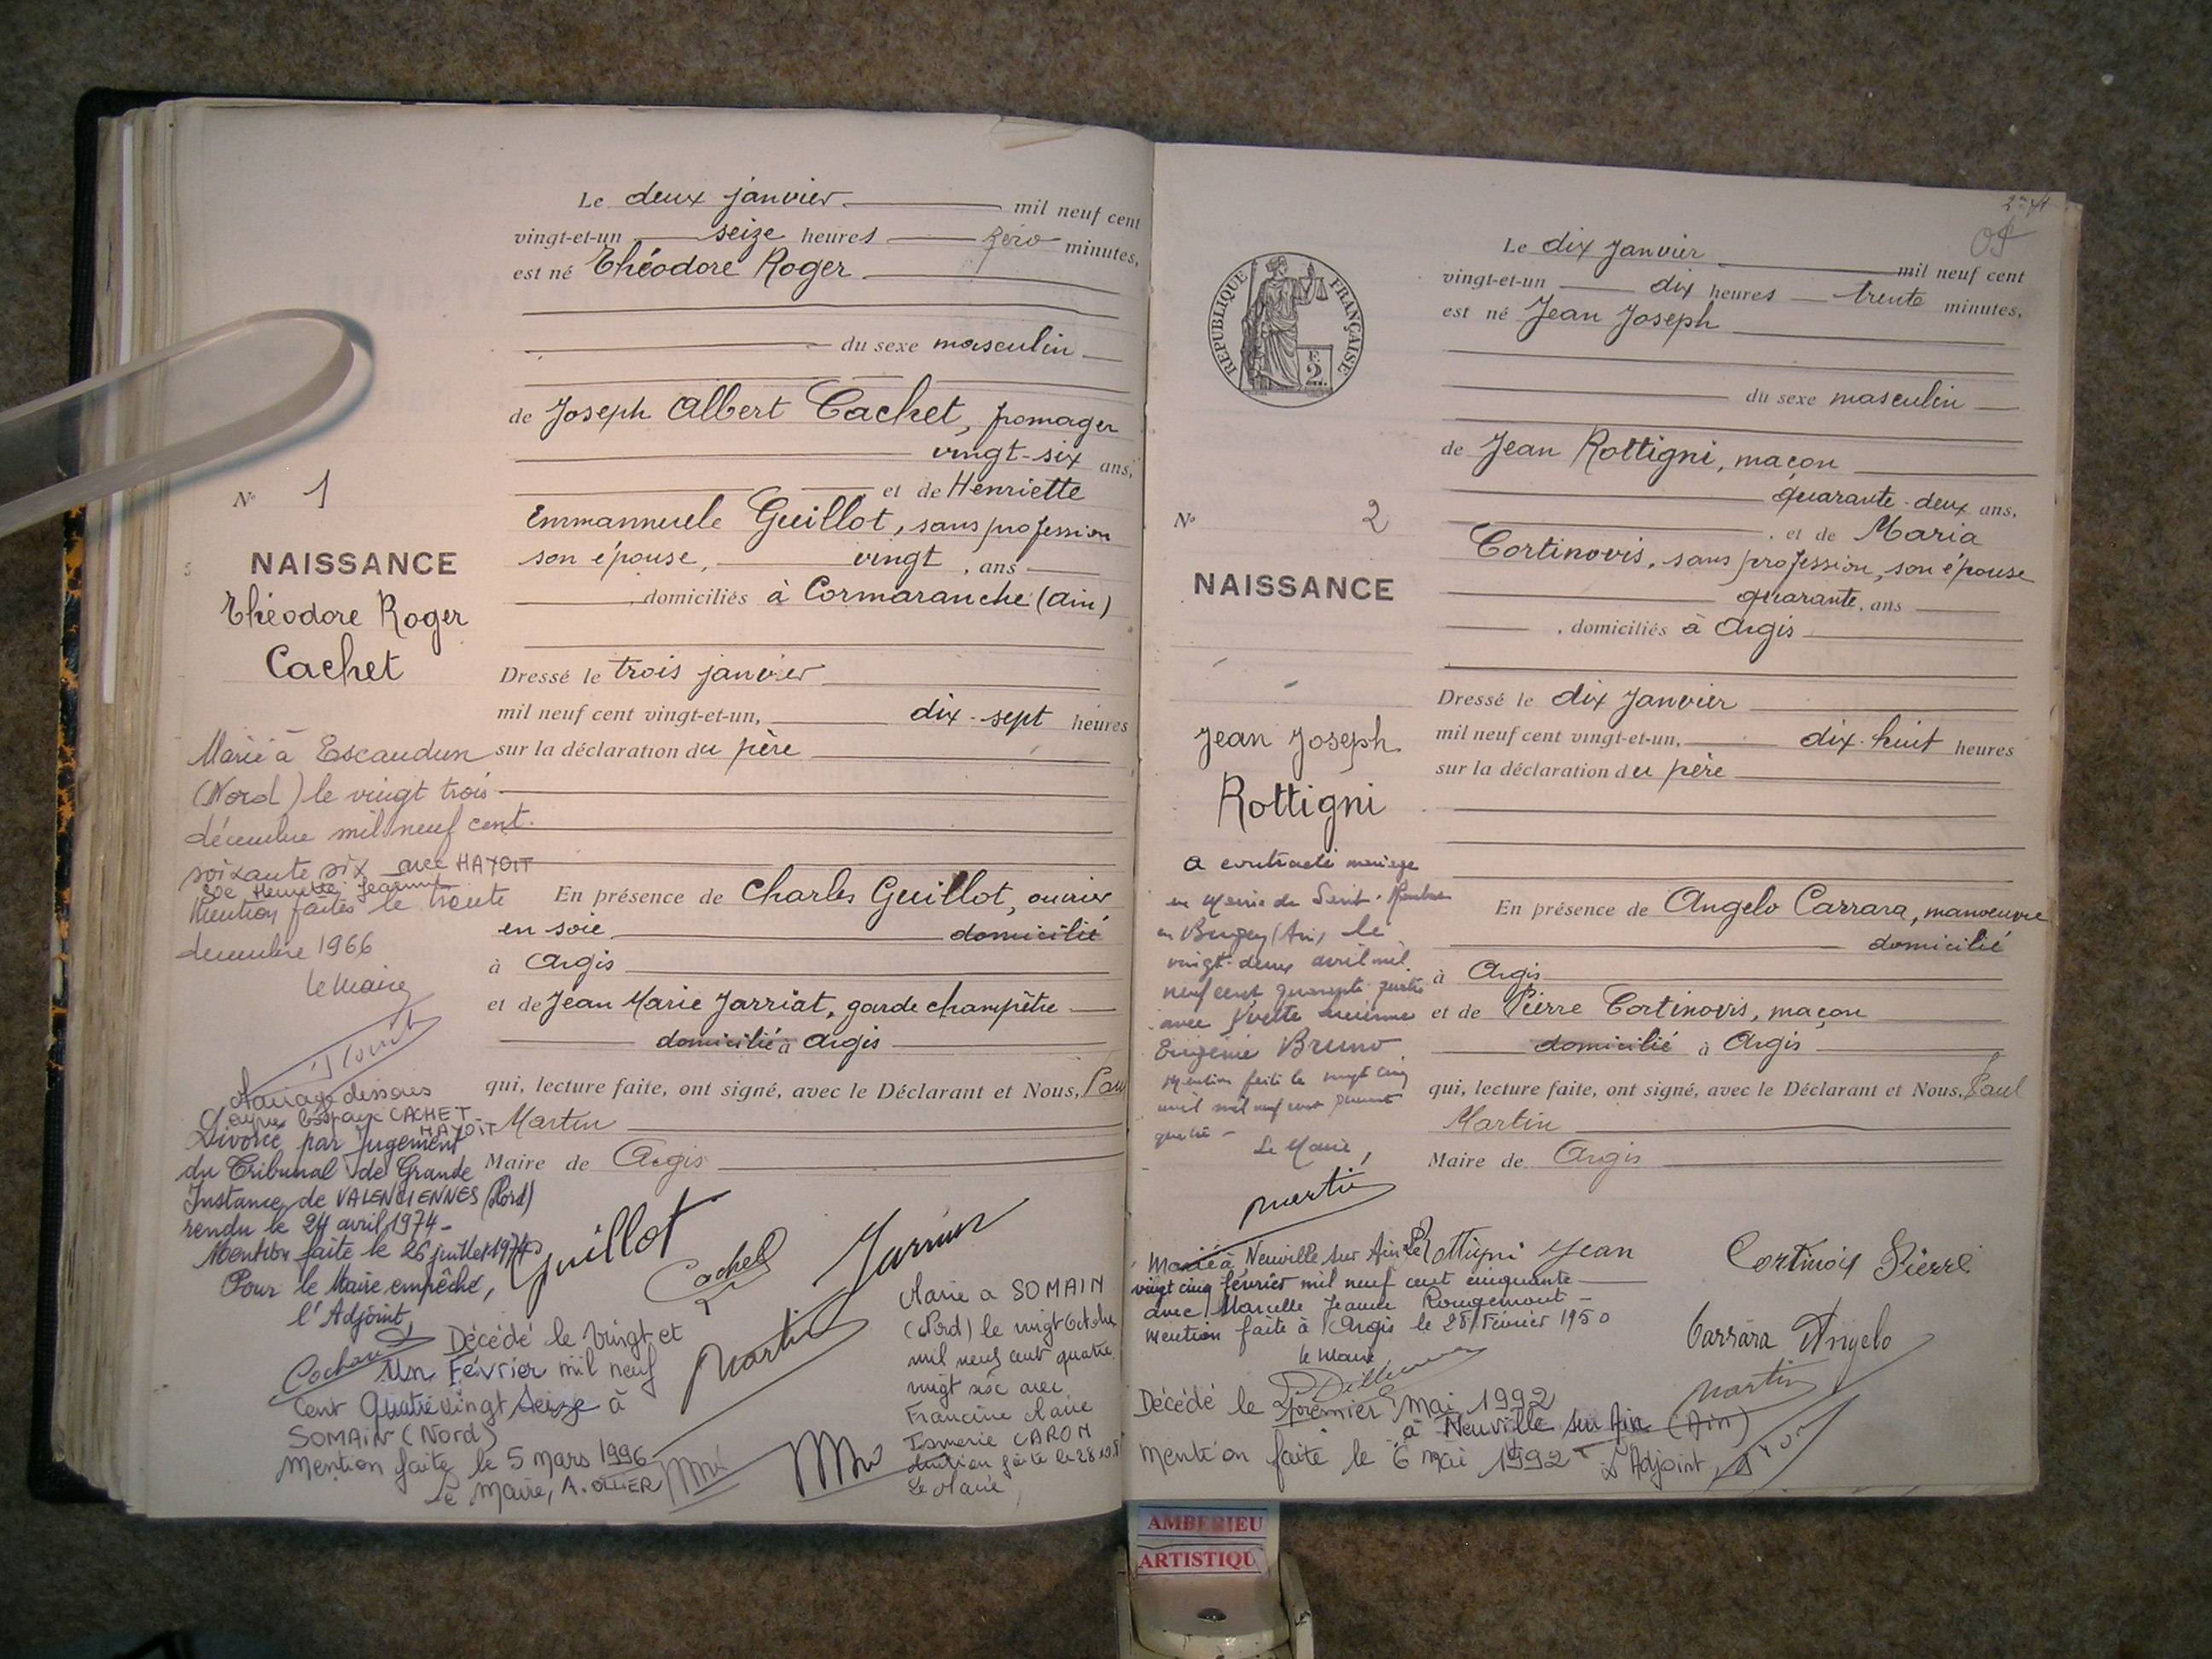 Le deux janvier mil neuf cent
vingt-et-un seize heures zéro minutes,
est né Théodore Roger
du sexe masculin
de Joseph Albert Cachet, fromager
vingt-six ans,
et de Henriette
Emmannuele Guillot, sans profession
son épouse, vingt, ans
domiciliés à Cormaranche (Ain)
Dressé le trois janvier
mil neuf cent vingt-et-un, dix-sept heures
sur la déclaration du père
En présence de Charles Guillot, ouvrier
en soie domicilié
à Argis
et de Jean Marie Jarriat, garde champêtre
domicilié à Argis
qui, lecture faite, ont signé, avec le Déclarant et Nous, Paul
Martin
Maire de Argis
N° 1
NAISSANCE
Théodore Roger
Cachet
Marié à Escaudun
(Nord) le vingt trois
décembre mil neuf cent
soixante six avec HAYOIT
Mention faites le trente
decembre 1966
le Maire
Mariage dissous
Divorce par Jugement
du Tribunal de Grande
Instance de VALENCIENNES (Nord)
rendu le 24 avril 1974-
Mention faite le 26 juillet 1974
Pour le Maire empêché,
l'Adjoint,
Guillot
Cachet
Martin
Décédé le Vingt et
Un Février mil neuf
Cent Quatre vingt seize à
SOMAIN (Nord)
Mention faite le 5 mars 1996
le Maire, A. OLLIER
Marié a SOMAIN
(Nord) le vingt Octobre
mil neuf cent quatre
vingt six avec
Francine Marie
Ismerie CARON
Le Maire
REPUBLIQUE FRANÇAISE
Le dix Janvier mil neuf cent
vingt-et-un dix heures trente minutes,
est né Jean Joseph
du sexe masculin
de Jean Rottigni, maçon
quarante-deux ans,
et de Maria
Cortinovis, sans profession, son épouse
quarante, ans
, domiciliés à Argis
Dressé le dix Janvier
mil neuf cent vingt-et-un, dix-huit heures
sur la déclaration du père
En présence de Angelo Carrara, manoeuvre
domicilié
à Argis
et de Pierre Cortinovis, maçon
domicilié à Argis
qui, lecture faite, ont signé, avec le Déclarant et Nous, Paul
Martin
Maire de Argis
N° 2
NAISSANCE
Jean Joseph
Rottigni
a contracté mariage
en Bugey (Ain) le
vingt-deux avril mil
neuf cent quarante quatre
avec Yvette Lucienne
Eugénie Bruno
Mention faite le vingt cinq
Le Maire,
Martin
Marié à Neuville sur Ain le
vingt cinq février mil neuf cent cinquante
avec Marcelle Jeanne Rougemont
mention faite à Argis le 28 Février 1950
le Maire
Rottigni Jean
Cortinovis Pierre
Carrara Angelo
Martin
Décédé le premier Mai 1992
à Neuville sur Ain (Ain)
Mention faite le 6 mai 1992
L'Adjoint,
AMBERIEU
ARTISTIQU